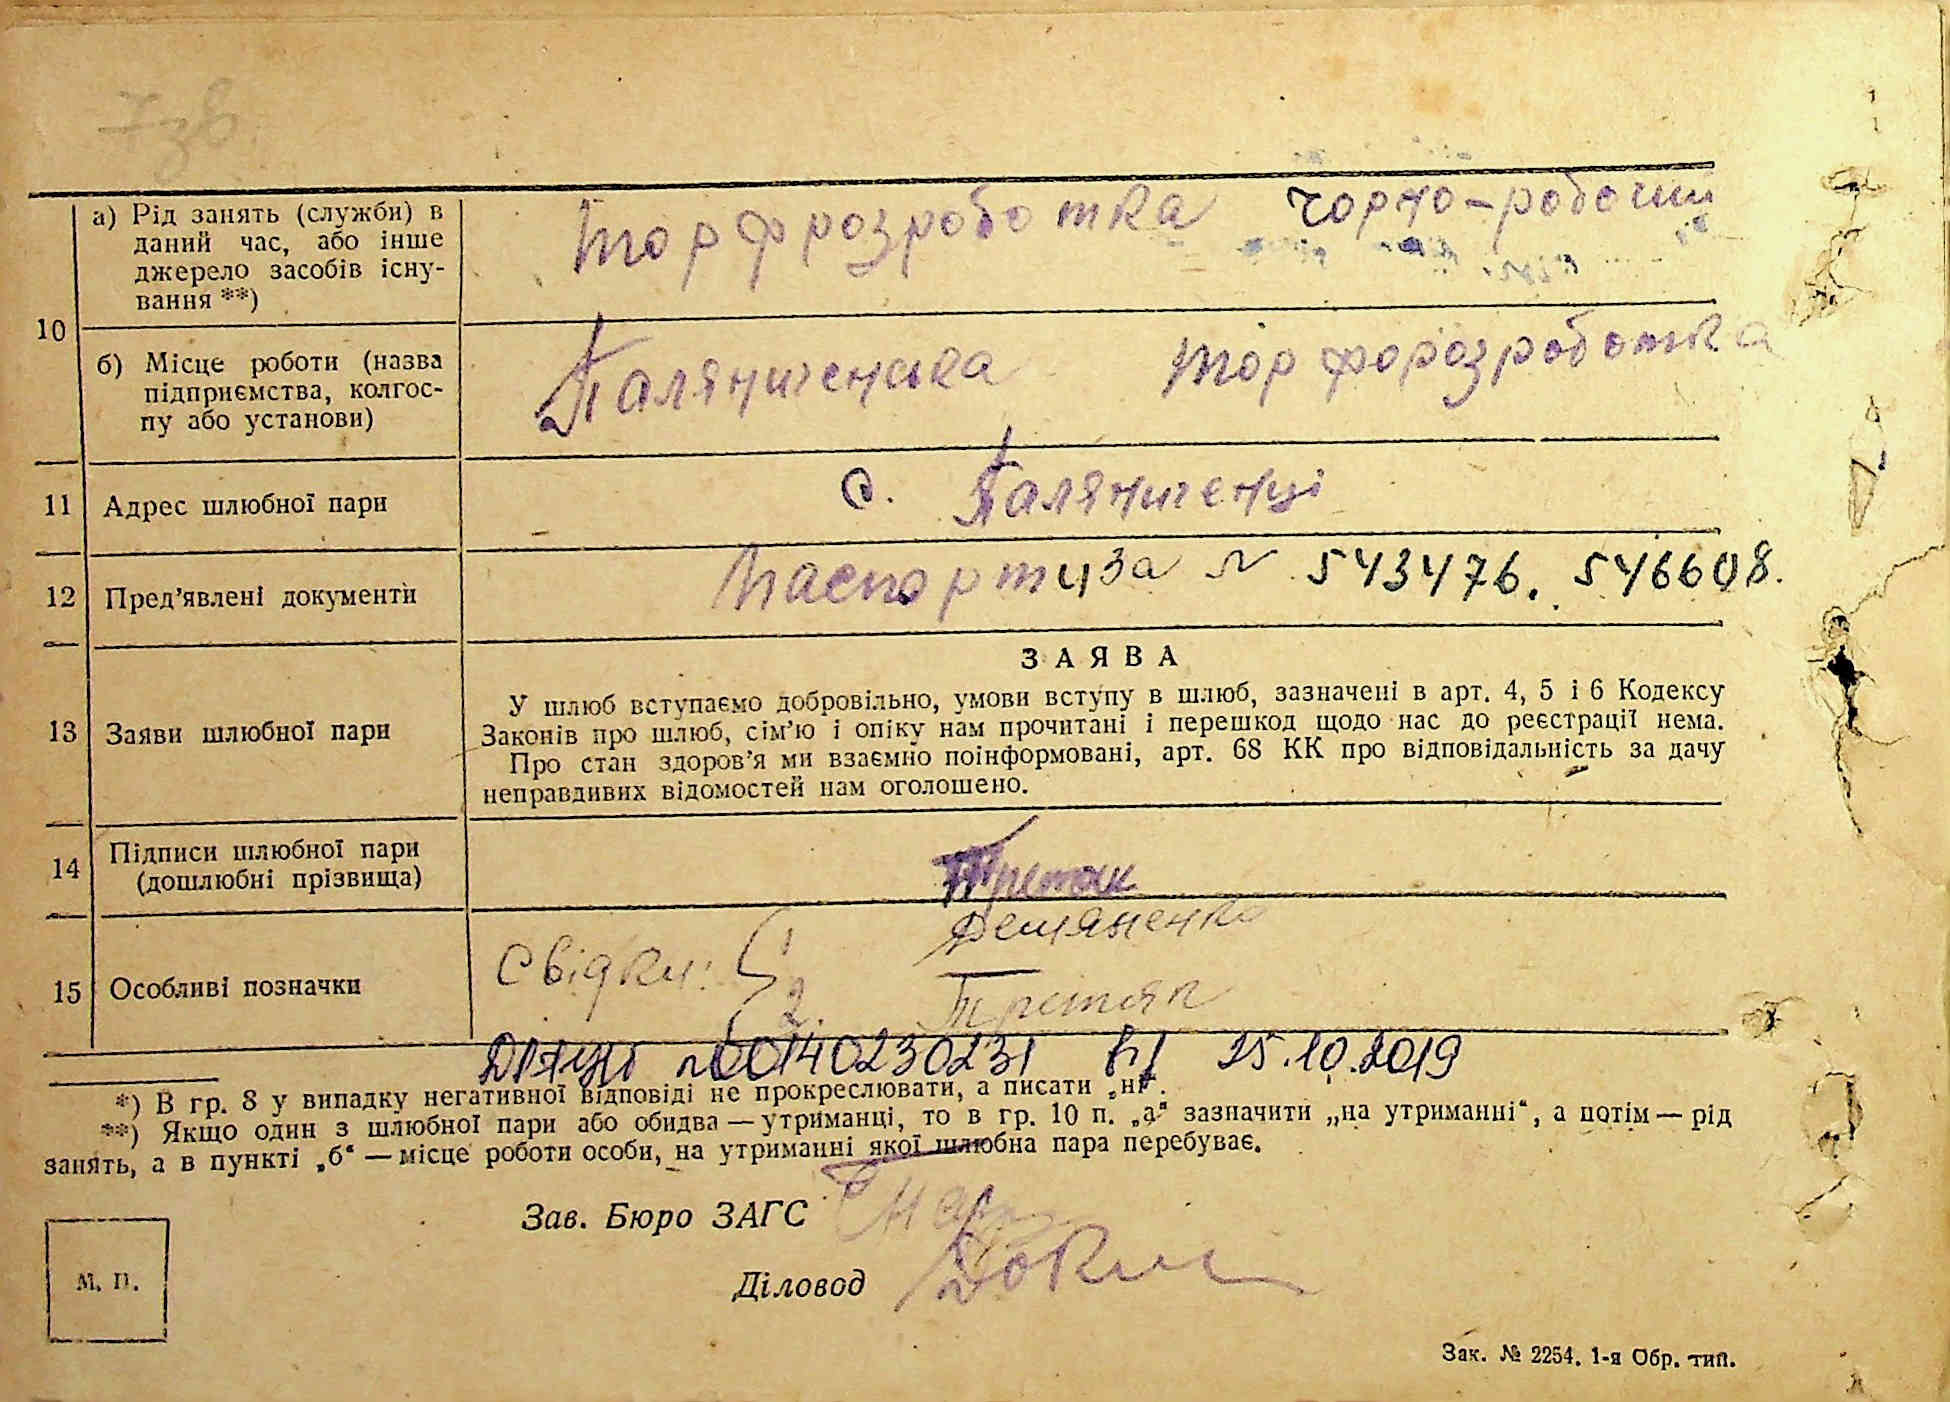 7зв
10
а) Рід занять (служби) в
даний час, або інше
джерело засобів існу-
вання **)
Торфрозроботка чорно-робочий
б) Місце роботи (назва
підприємства, колгос-
пу або установи)
Паляниченська Торфорозроботка
11 Адрес шлюбної пари
с. Паляниченці
12 Пред’явлені документи
Паспорт N 543476. 546608.
13 Заяви шлюбної пари
ЗАЯВА
У шлюб вступаємо добровільно, умови вступу в шлюб, зазначені в арт. 4, 5 і 6 Кодексу
Законів про шлюб, сім’ю і опіку нам прочитані і перешкод щодо нас до реєстрації нема.
Про стан здоров’я ми взаємно поінформовані, арт. 68 КК про відповідальність за дачу
неправдивих відомостей нам оголошено.
14 Підписи шлюбної пари
(дошлюбні прізвища)
Третяк
Демяненко
15 Особливі позначки
Свідки: 1
2. Третяк
№00140230231 від 25.10.2019
*) В гр. 8 у випадку негативної відповіді не прокреслювати, а писати „ні“.
**) Якщо один з шлюбної пари або обидва — утриманці, то в гр. 10 п. „а“ зазначити „на утриманні“, а потім — рід
занять, а в пункті „б“ — місце роботи особи, на утриманні якої шлюбна пара перебуває.
Зав. Бюро ЗАГС
Діловод
М. П.
Зак. № 2254. 1-я Обр. тип.